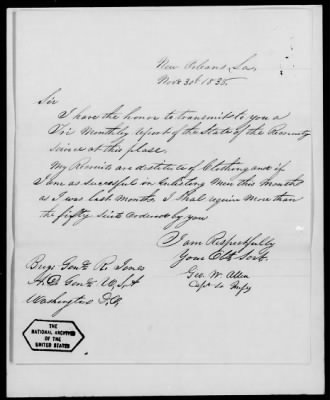 New Orleans, La,
Nov 30th 1835.
Sir
I have the honor to transmit to you a
Tri Monthly report of the State of the Recruiting
service at this place.
My Recruits are destitute of Clothing and if
I am as successful in enlisting Men this month
as I was last month I shal require more than
the fifty Suits ordered by you
I am Respectfully
Your Obt Servt
Geo. W. Allen
Capt 4 Infy
Brig Genl R. Jones
A.G. Genl U.S.A
Washington D.C.
THE
NATIONAL ARCHIVES
OF THE
UNITED STATES